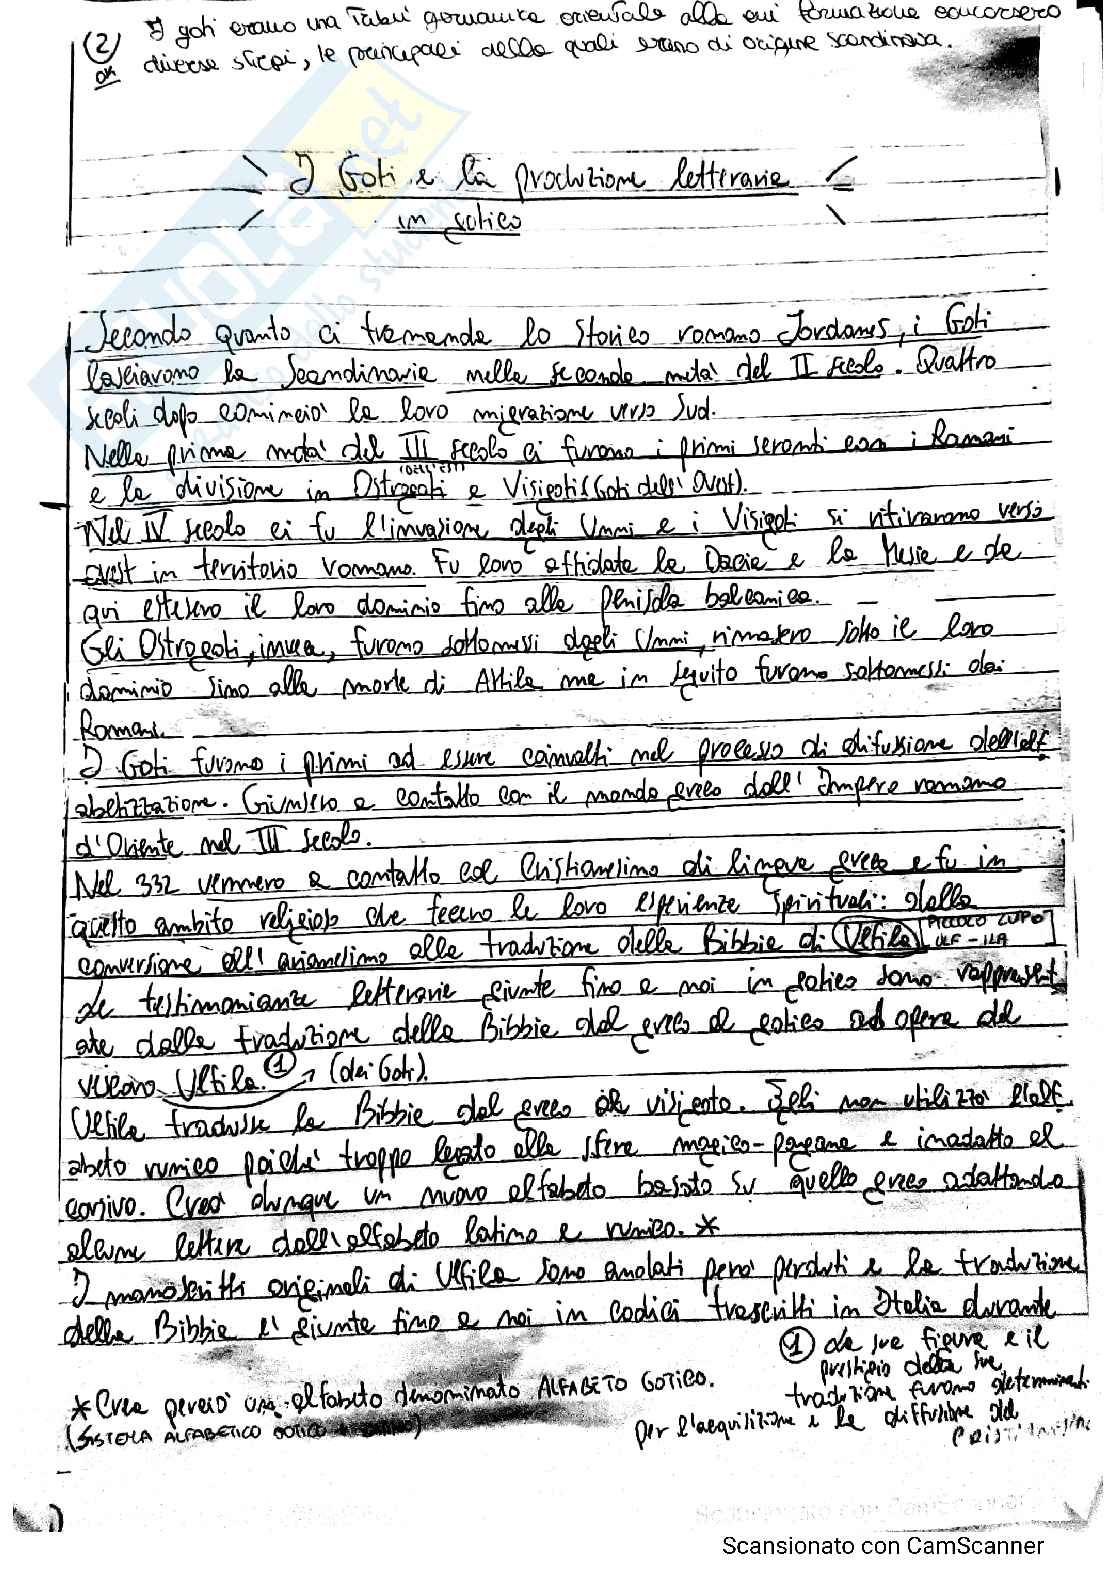 I goti erano una tribù germanica orientale alla cui formazione concorsero
(2) diverse stirpi, le principali delle quali erano di origine scandinava.
OK
I Goti e la produzione letteraria
in gotico
Secondo quanto ci tramanda lo storico romano Jordanes, i Goti
lasciarono la Scandinavia nella seconda metà del II secolo. Quattro
secoli dopo cominciò la loro migrazione verso Sud.
Nella prima metà del III secolo ci furono i primi scontri con i Romani
(dell'est)
e la divisione in Ostrogoti e Visigoti (Goti dell'Ovest).
Nel IV secolo ci fu l'invasione degli Unni e i Visigoti si ritirarono verso
ovest in territorio romano. Fu loro affidata la Dacia e la Mesia e da
qui estesero il loro dominio fino alla penisola balcanica.
Gli Ostrogoti, invece, furono sottomessi dagli Unni, rimasero sotto il loro
dominio sino alla morte di Attila ma in seguito furono sottomessi dai
Romani.
I Goti furono i primi ad essere coinvolti nel processo di diffusione dell'alf
abetizzazione. Giunsero a contatto con il mondo greco dall'Impero romano
d'Oriente nel III secolo.
Nel 332 vennero a contatto col Cristianesimo di lingua greca e fu in
questo ambito religioso che fecero le loro esperienze spirituali: dalla
conversione all'arianesimo alla traduzione della Bibbia di Ulfila PICCOLO LUPO
ULF-ILA
Le testimonianze letterarie giunte fino a noi in gotico sono rappresent
ate dalla traduzione della Bibbia dal greco al gotico ad opera del
vescovo Ulfila. (1) → (dei Goti).
Ulfila tradusse la Bibbia dal greco al visigoto. Egli non utilizzò l'alf
abeto runico poiché troppo legato alla sfera magico-pagana e inadatto al
corsivo. Creò dunque un nuovo alfabeto basato su quello greco adattando
alcune lettere dall'alfabeto latino e runico. *
I manoscritti originali di Ulfila sono andati però perduti e la traduzione
della Bibbia è giunta fino a noi in codici trascritti in Italia durante
(1) La sua figura e il
prestigio della sua
traduzione furono determinanti
per l'acquisizione e la diffusione del
CRISTIANESIMO
* Crea perciò un alfabeto denominato ALFABETO GOTICO.
(SISTEMA ALFABETICO GOTICO
Scansionato con CamScanner
Scansionato con CamScanner